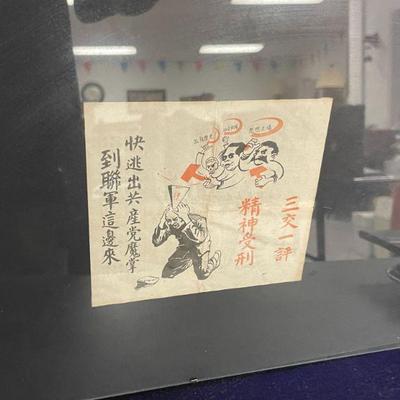 三交一評
精神受刑
快逃出共産党魔掌
到聯軍這邊來